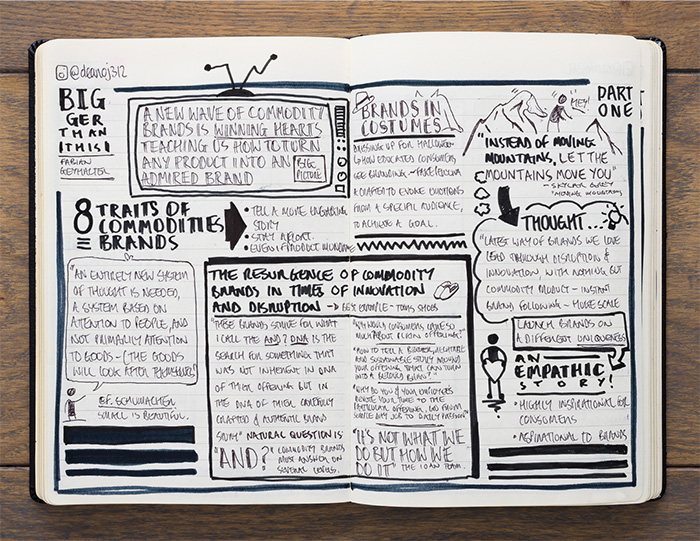 @deanoj312
BIG
GER
THAN
THIS!
FABIAN
GEYRHALTER
A NEW WAVE OF COMMODITY
BRANDS IS WINNING HEARTS
TEACHING US HOW TO TURN
ANY PRODUCT INTO AN
ADMIRED BRAND
BIG
PICTURE
8 TRAITS OF
COMMODITIES
BRANDS
• TELL A MORE ENGAGING
STORY
• STAY AFLOAT
• EVEN IF PRODUCT MUNDANE
"AN ENTIRELY NEW SYSTEM
OF THOUGHT IS NEEDED,
A SYSTEM BASED ON
ATTENTION TO PEOPLE, AND
NOT PRIMARILY ATTENTION
TO GOODS - (THE GOODS
WILL LOOK AFTER THEMSELVES)
E.F. SCHUMACHER
SMALL IS BEAUTIFUL.
THE RESURGENCE OF COMMODITY
BRANDS IN TIMES OF INNOVATION
AND DISRUPTION → BEST EXAMPLE - TOMS SHOES
THESE BRANDS STRIVE FOR WHAT
I CALL THE AND? DNA IS THE
SEARCH FOR SOMETHING THAT
WAS NOT INHERENT IN DNA
OF THEIR OFFERING BUT IN
THE DNA OF THEIR CAREFULLY
CRAFTED & AUTHENTIC BRAND
STORY" NATURAL QUESTION IS
"AND?" COMMODITY BRANDS
MUST ANSWER ON
SEVERAL LEVELS.
"WHY WOULD CONSUMERS CARE SO
MUCH ABOUT PLAIN OFFERING?"
"HOW TO TELL A BIGGER, RELATABLE
AND SUSTAINABLE STORY AROUND
YOUR OFFERING THAT CAN TURN
INTO A BELOVED BRAND?"
"WHY DO YOU & YOUR EMPLOYEES
DEVOTE YOUR TIME TO THE
PARTICULAR OFFERING, GO FROM
JOB TO DAILY PASSION"
"IT'S NOT WHAT WE
DO BUT HOW WE
DO IT" THE TEAM.
BRANDS IN
COSTUMES
DRESSING UP FOR HALLOWEEN
HOW EDUCATED CONSUMERS
SEE BRANDING - FAKE
CRAFTED TO EVOKE EMOTIONS
FROM A SPECIAL AUDIENCE,
TO ACHIEVE A GOAL.
HEY!
PART
ONE
"INSTEAD OF MOVING
MOUNTAINS, LET THE
MOUNTAINS MOVE YOU"
- SKYLAR GREY
"MOVING MOUNTAINS"
THOUGHT...
"LATEST WAVE OF BRANDS WE LOVE
LEAD THROUGH DISRUPTION &
INNOVATION, WITH NOTHING BUT
COMMODITY PRODUCT - INSTANT
BRAND FOLLOWING - HUGE SCALE
LAUNCH BRANDS ON
A DIFFERENT UNIQUENESS
AN
EMPATHIC
STORY!
• HIGHLY INSPIRATIONAL FOR
CONSUMERS
• ASPIRATIONAL TO BRANDS